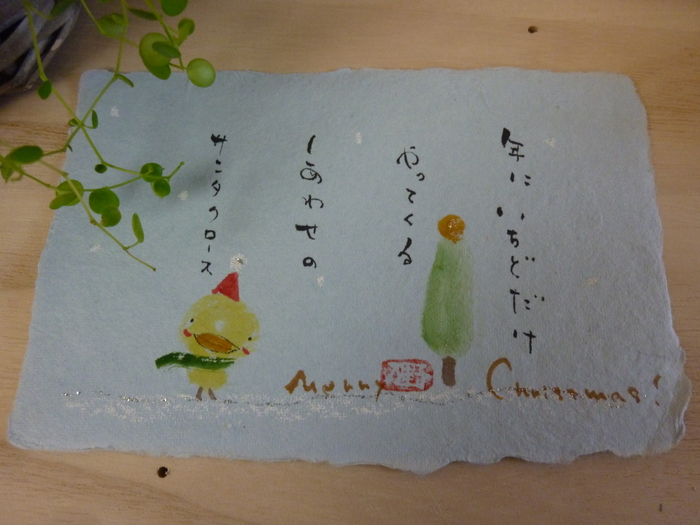 年にいちどだけ
やってくる
しあわせの
サンタクロース
Merry Christmas!